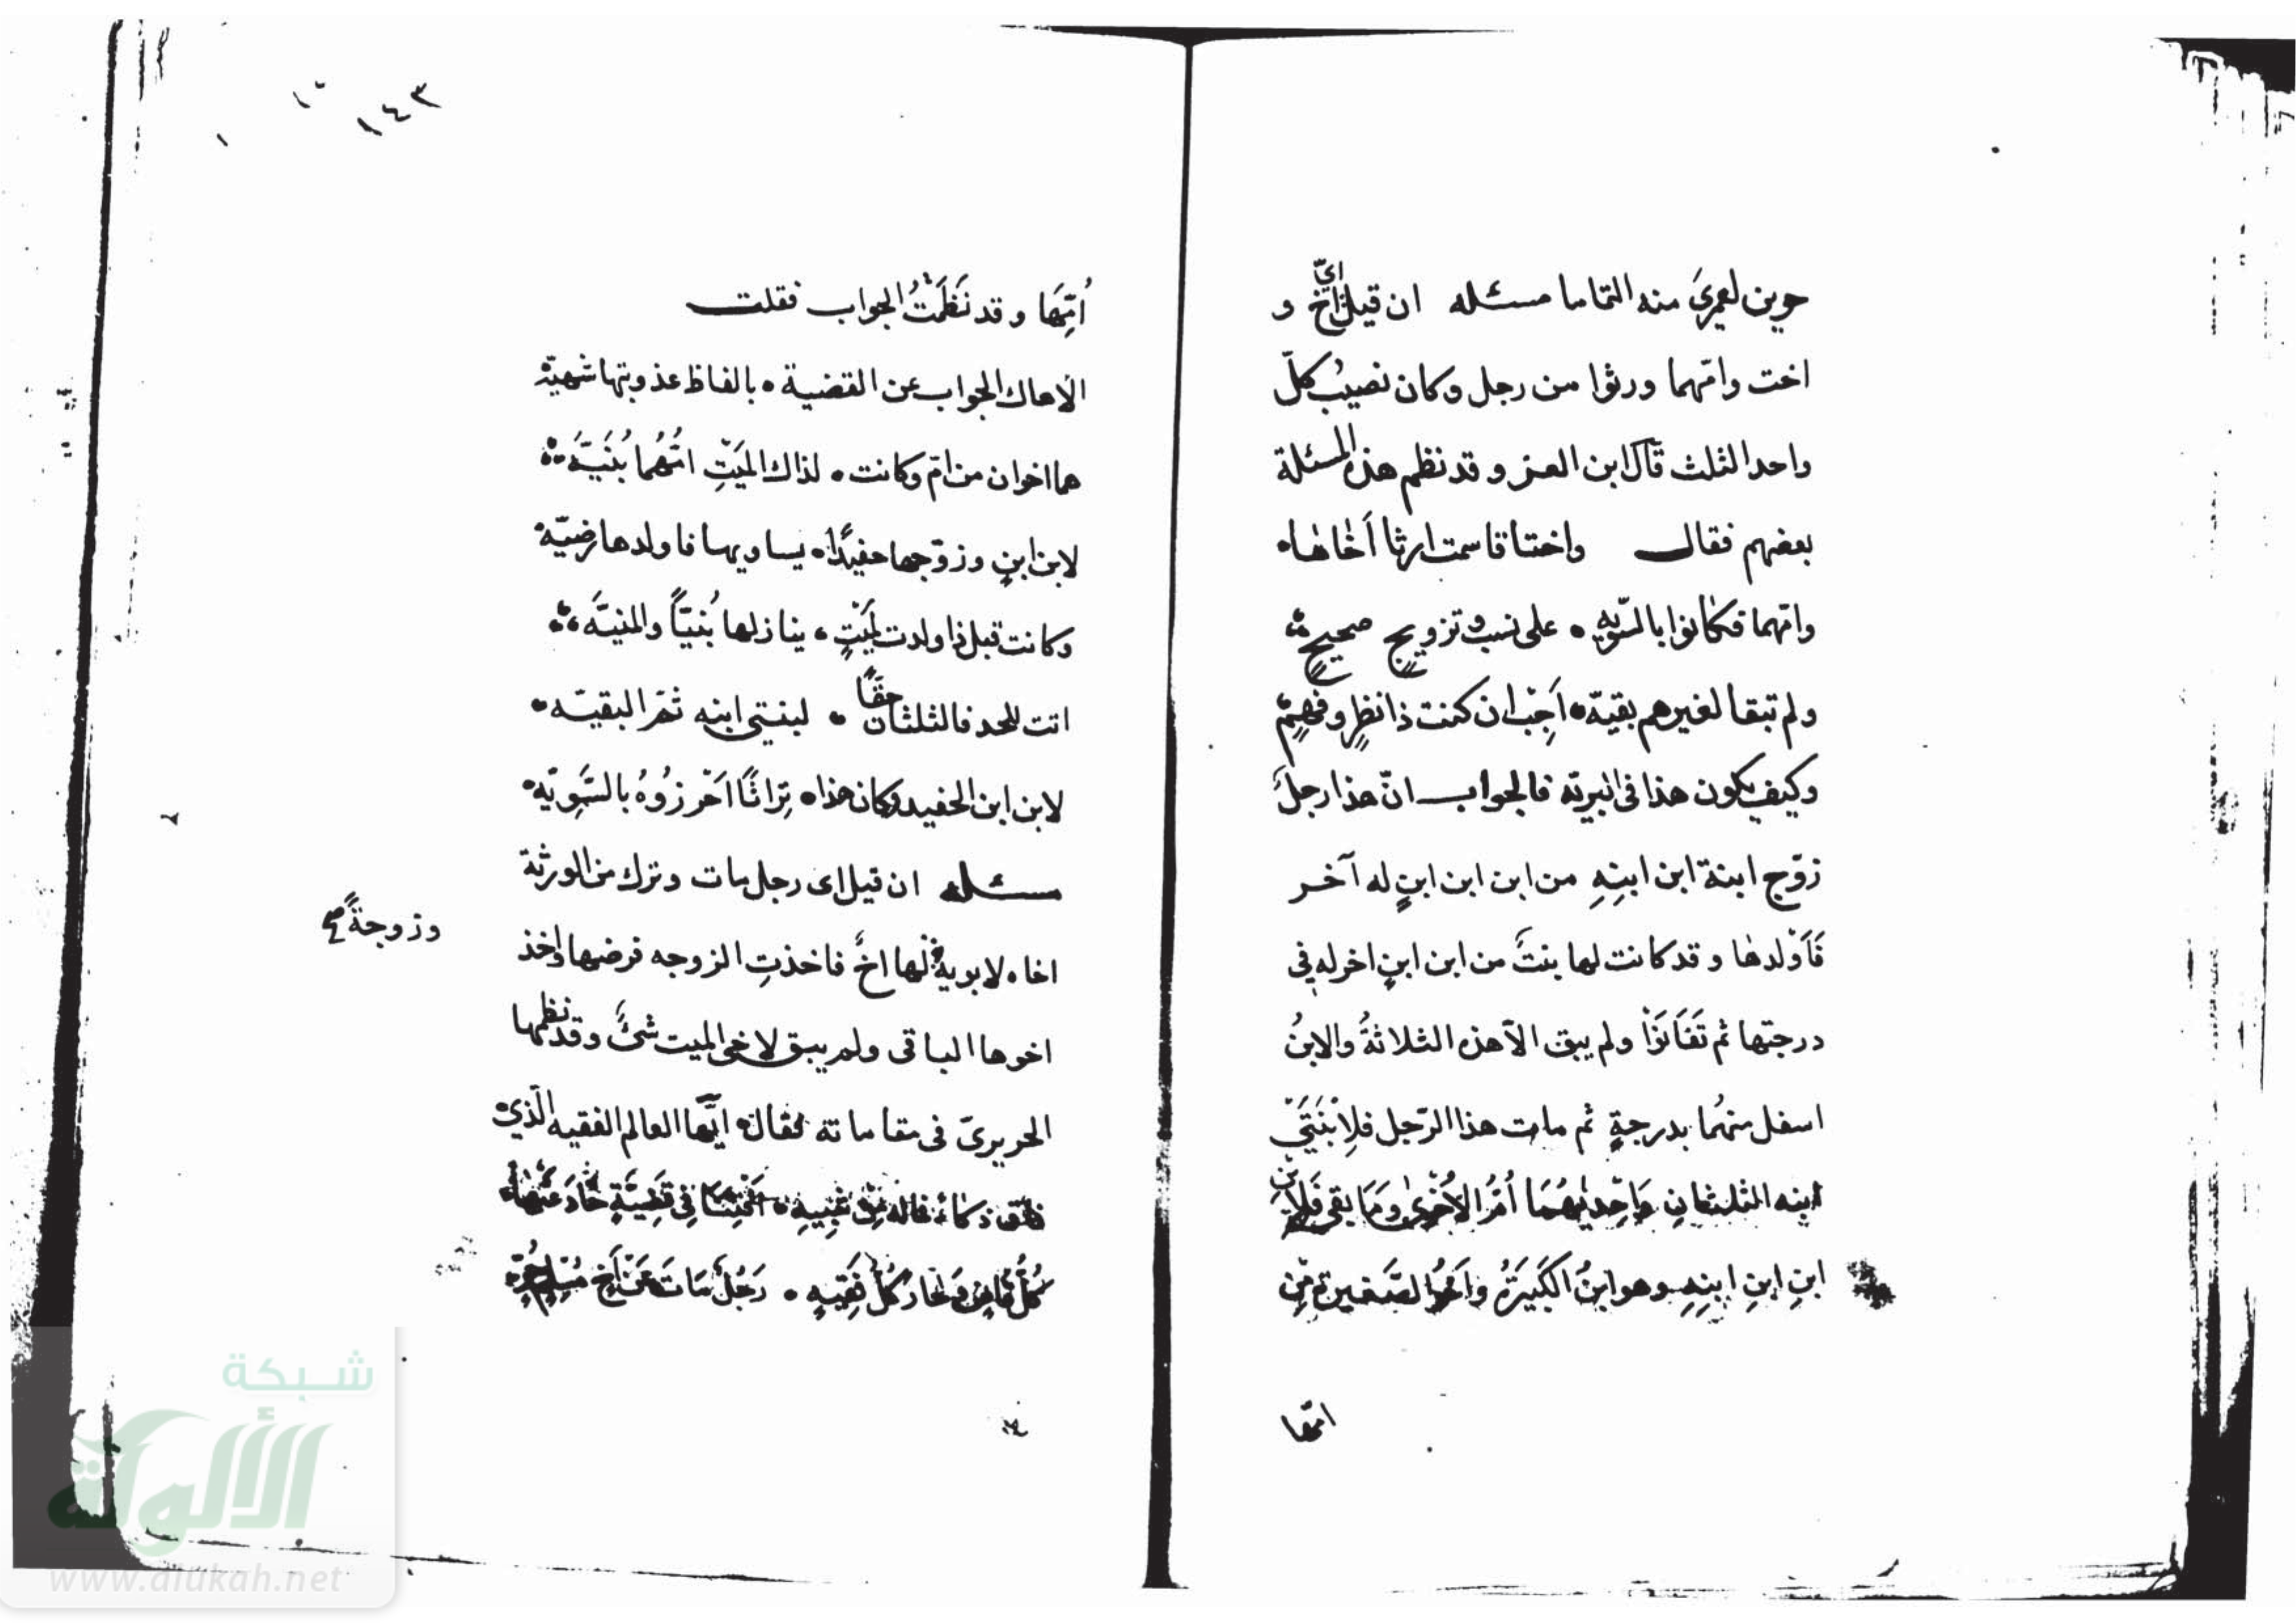 حوين لعمري منه التماما مسئله ان قيل اي اخ و
اخت وامّهما ورثوا من رجل وكان نصيبُ كلّ
واحد الثلث قال ابن العز و قد نظم هذه المسئلة
بعضهم فقال واختا قاسمت ارثا أخاها
وامّهما فكانوا بالسّويه على نسب وتزويج صحيح
ولم تبقا لغيرهم بقيّه أجِب ان كنت ذا نظرٍ وفهمٍ
وكيف يكون هذا في البريّه فالجواب انّ هذا رجلٌ
زوّج ابنة ابن ابنِهِ من ابن ابن ابنٍ له آخر
فَأَوْلدها و قد كانت لها بنتُ من ابن ابنٍ اخر له في
درجتها ثم تَفَانَوْا ولم يبق الّا هذه الثلاثةُ والابنُ
اسفل منهُما بدرجةٍ ثم مات هذا الرّجل فلابْنَتَيْ
ابنه الثلثان وَاِحْديهُمَا أُمُّ الأُخْرىٰ وَمَا بقي فَلِابْنِ
ابنِ ابنِ ابنِهِ وهو ابنُ الكَبيرَةِ واَخُو الصَّغيرة مِن
امّها
١٤٣
أُمِّهَا و قد نَظَمْتُ الجواب فقلت
الا هاك الجواب عن القضية بالفاظ عذوبتها شهيّه
هما اخوان من امّ وكانت لذاك الميّتِ امُّهُما بُنَيَّه
لابن ابنٍ وزوّجها حفيدًا يساويها فاولدها رضيّه
وكانت قبل ذا ولدت لمَيْتٍ ينازلها بُنيّاً والمنيَّه
اتت للجد فالثلثان حقًّا لبنتي ابنه ثمّ البقيّه
لابن ابن الحفيد وكان هذا تراثًا اَحْرزُوُهُ بالسَّوِيّه
مسئله ان قيل اى رجل مات وترك من الورثة
اخاه لابويه وزوجةً لها اخٌ فاخذتِ الزوجه فرضها واخذ
اخوها الباقى ولم يبق لاخى الميت شئٌ وقد نظمها
الحريرىّ فى مقاماته فقال ايّها العالم الفقيه الّذي
فاق ذكاءً فماله مِنْ شَبِيهِ اَفْتِنَا فِي قَضِيَّةٍ حَادَ عَنْهَا
كُلُّ قاضٍ وَحَارَ كُلُّ فَقِيهِ رَجُلٌ مَاتَ عَنْ اَخٍ مُسْلِمٍ حُرٍّ
شبكة
الألوكة
www.alukah.net